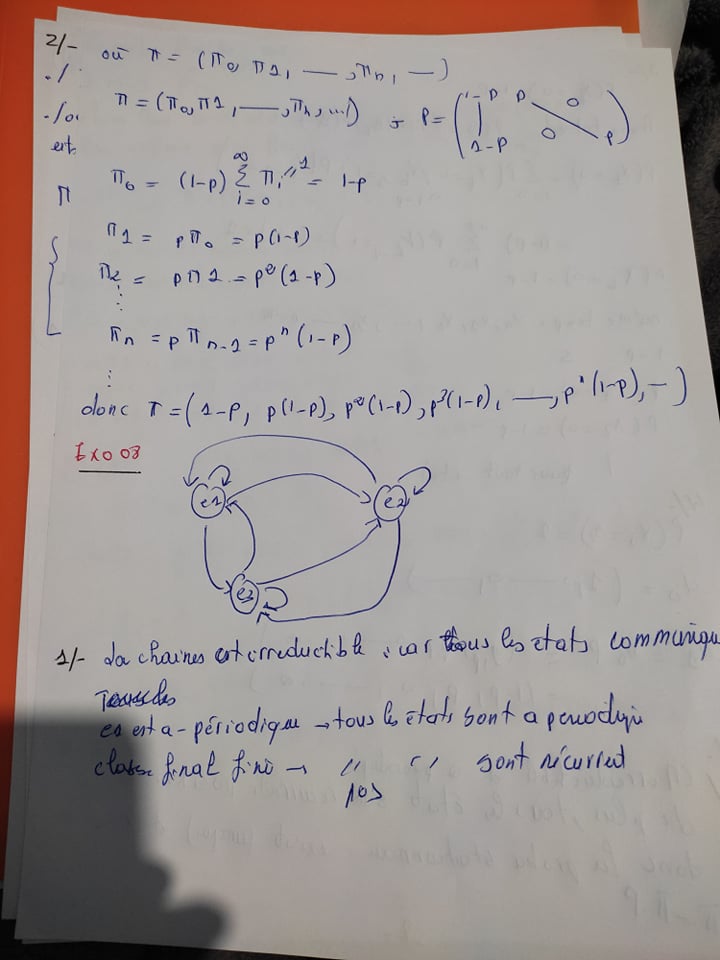 2/-
./
./or
est
π
où π = (π0, π1, —, πn, —)
π = (π0, π1, —, πn, ...) ; P = (1-p p 0
1-p 0 p)
π0 = (1-p) ∑ i=0 ∞ πi = 1 = 1-p
π1 = pπ0 = p(1-p)
π2 = pπ1 = p²(1-p)
⋮
πn = pπn-1 = pⁿ(1-p)
⋮
donc π = (1-p, p(1-p), p²(1-p), p³(1-p), —, pⁿ(1-p), —)
Exo 03
e1 e2
e3
1/- La chaines est irreductible, car tous les états communique
e1 est a-périodique → tous les états sont a periodique
classe final fini → 〃 〃 sont récurrent
pos